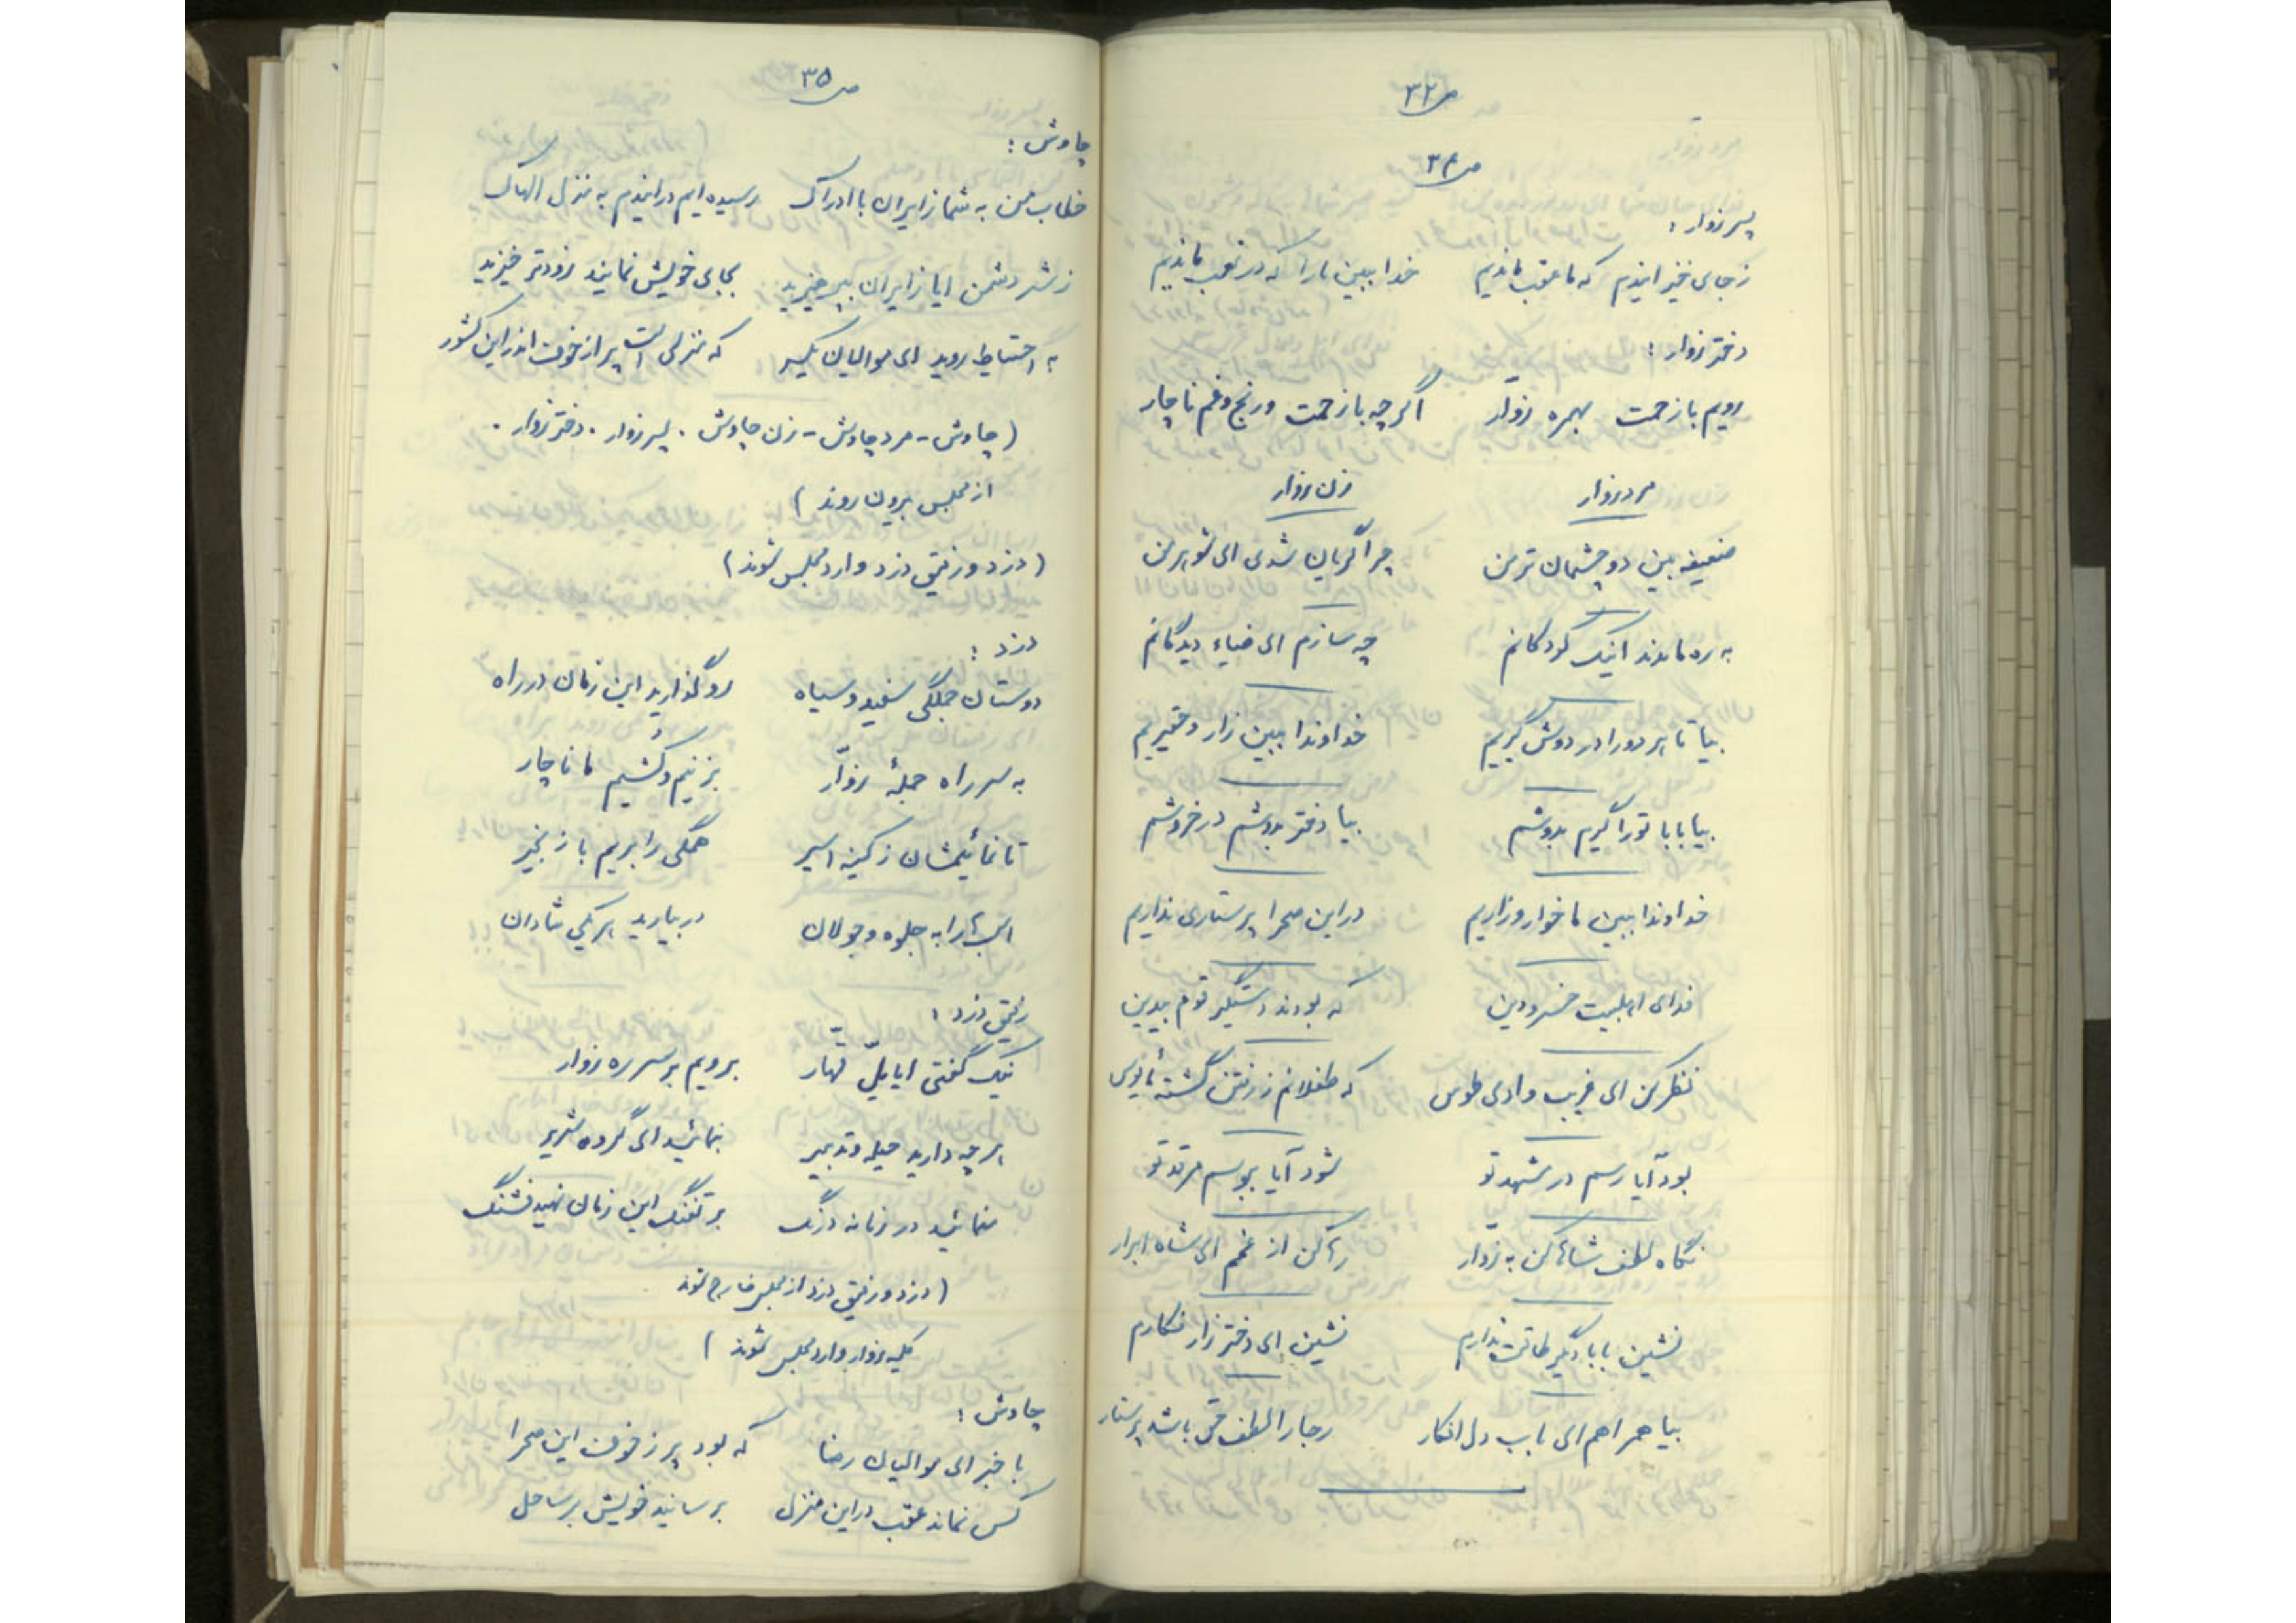 ص ۳۳
ص ۳۴
پسر زوار :
ز جای خیز ایندم که ما عقب ماندیم خدا ببین ما را که در تعب ماندیم
دختر زوار :
رویم با زحمت بهمره زوّار اگر چه با زحمت و رنج و غم ناچار
مرد زوار زن زوار
ضعیفه بین دو چشمان تر من چرا گریان شدی ای شوهر من
به ره ماندند اینک کودکانم چه سازم ای ضیاء دیدگانم
بیا تا هر دو را در دوش گیریم خداوندا ببین زار و حقیریم
بیا بابا تو را گیرم بدوشم بیا دختر بدوشم در خروشم
خداوندا ببین ما خوار و زاریم در این صحرا پرستاری نداریم
فدای اهلبیت خسرو دین که بودند دستگیر قوم بیدین
نظر کن ای غریب وادی طوس که طفلانم ز رفتن گشته مأیوس
بود آیا رسم در مشهد تو شود آیا ببوسم مرقد تو
نگاه لطف شاها کن به زوّار رها کن از غمم ای شاه ابرار
نشین بابا دگر طاقت ندارم نشین ای دختر زار فکارم
بیا همراهم ای باب دل افکار رجا را لطف حق باشد پرستار
ص ۳۵
چاوش :
خطاب من به شما زایران با ادراک رسیده ایم در ایندم به منزل الهاک
ز شر دشمن ایا زایران بپرهیزید بجای خویش نمایند زودتر خیزید
به احتیاط روید ای موالیان یکسر که منزلی است پر از خوف اندر این کشور
(چاوش - مرد چاوش - زن چاوش . پسر زوار . دختر زوار .
از مجلس بیرون روند )
( دزد و رفیق دزد وارد مجلس شوند )
دزد :
دوستان جملگی سفید و سیاه رو گذارید این زمان در راه
به سر راه جملهٔ زوّار بزنیم و کُشیم ما ناچار
تا نمائیمشان ز کینه اسیر همگی را بریم با زنجیر
اسبها را به جلوه و جولان در بیارید هر یکی شادان
رفیق دزد :
نیک گفتی ایا یلّ قهّار برویم بر سر ره زوار
هر چه دارید حیله و تدبیر بنمائید ای گروه شریر
منمائید در زمانه درنگ بر تفنگ این زمان نهید فشنگ
( دزد و رفیق دزد از مجلس خارج شوند
کلیه زوار وارد مجلس شوند )
چاوش :
با خبر ای موالیان رضا که بود پر ز خوف این صحرا
کس نماند عقب در این منزل برسانید خویش بر ساحل